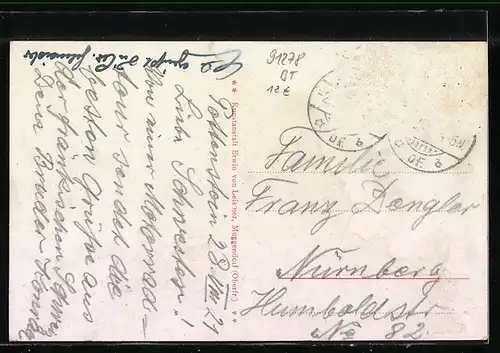 Pottenstein 28. VIII 21
Liebe Schwester!
Von einer Motorrad-
tour sendet die
besten Grüsse aus
der fränkischen Schweiz
Dein Bruder
Es grüßt
** Kunstanstalt Erwin von Leistner, Muggendorf (Oberfr.) **
91278
BT
12 €
OF. b
OF. b
Familie
Franz Dengler
Nürnberg
Humboldstr
No 82